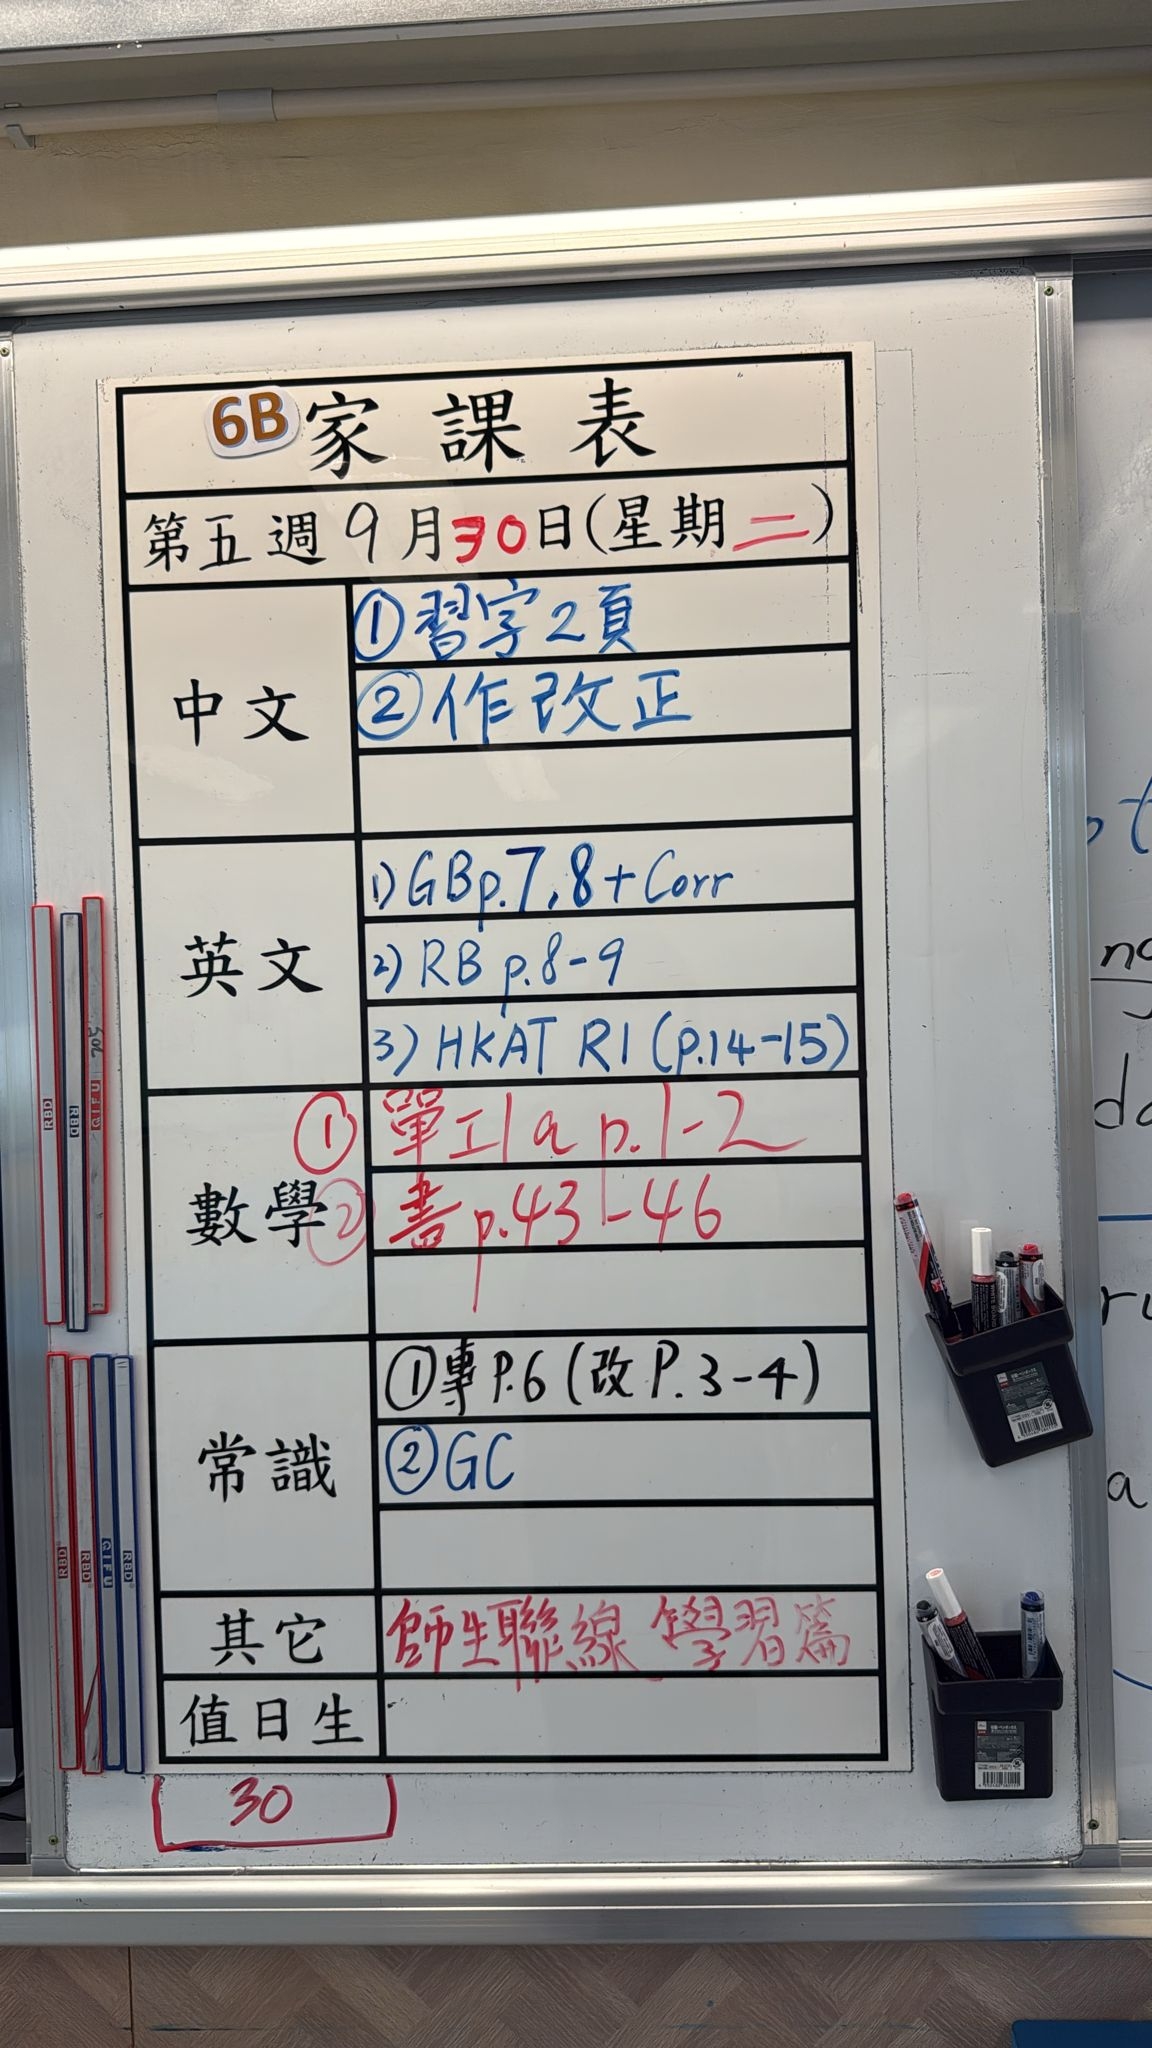 6B 家課表
第五週9月30日(星期二)
中文
①習字2頁
②作改正
英文
1)GBp.7,8+Corr
2)RB p.8-9
3)HKAT R1(p.14-15)
數學
①單工1a p.1-2
②書p.43-46
常識
①專P.6(改P.3-4)
②GC
其它
師生聯線 學習篇
值日生
30